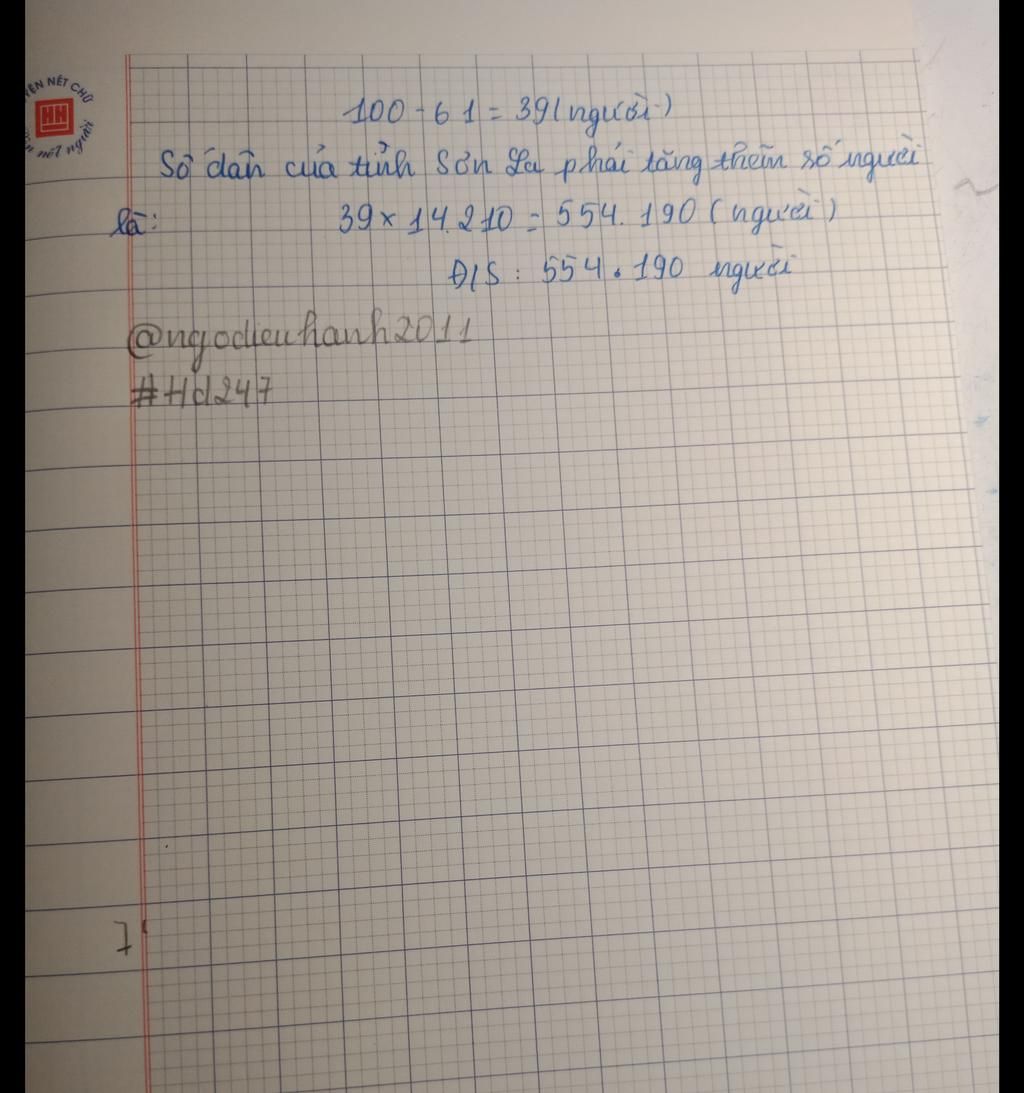 YỆN NÉT CHỮ
HH
nết người
100 - 61 = 39 (người)
Số dân của tỉnh Sơn La phải tăng thêm số người
là: 39 x 14.210 = 554.190 (người)
Đ/S : 554.190 người
@ngodieuhanh2011
#Hd247
7